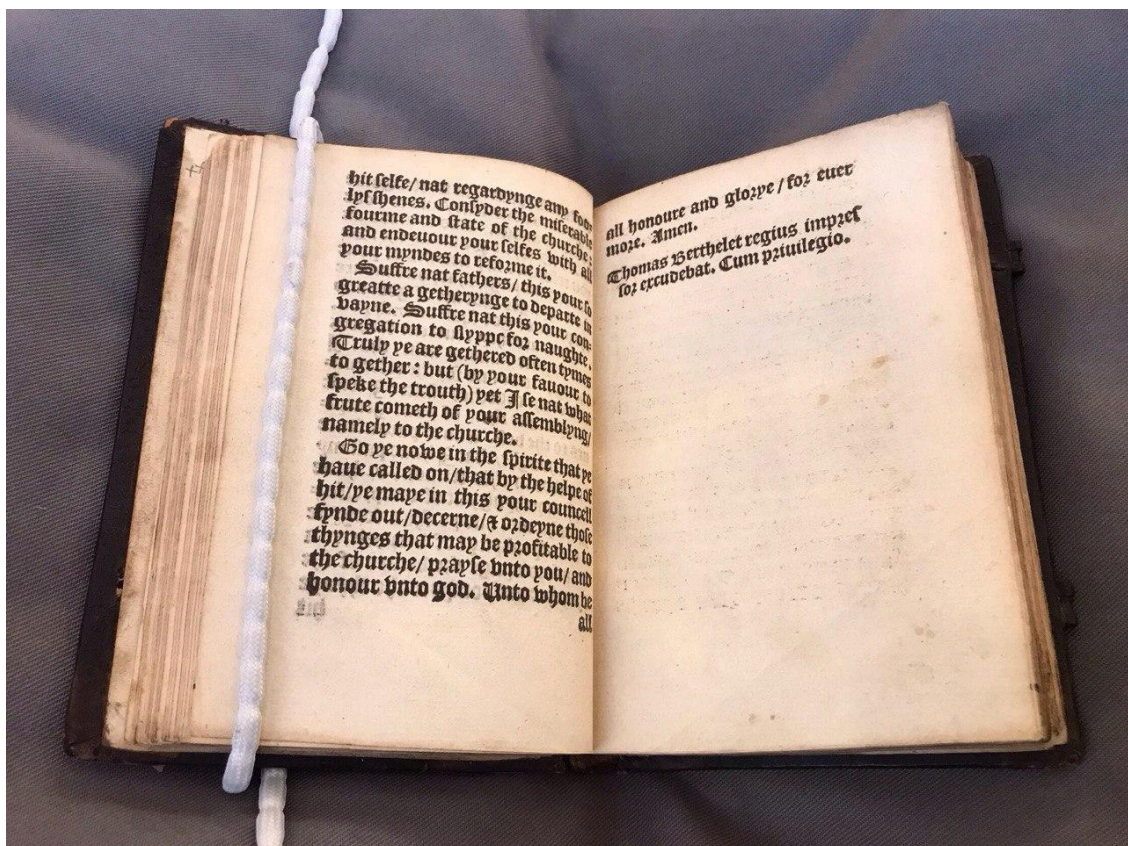 hit selfe/ nat regardynge any foo-
lysshenes. Consyder the miserable
fourme and state of the churche:
and endeuour your selfes with all
your myndes to reforme it.
Suffre nat fathers/ this your so
greatte a getherynge to departe in
vayne. Suffre nat this your con-
gregation to slyppe for naughte.
Truly ye are gethered often tymes
to gether: but (by your fauour to
speke the trouth) yet I se nat what
frute cometh of your assemblyng/
namely to the churche.
Go ye nowe in the spirite that ye
haue called on/that by the helpe of
hit/ye maye in this your councell
fynde out/decerne/& ordeyne those
thynges that may be profitable to
the churche/ prayse vnto you/ and
honour vnto god. Unto whom be
all
all honoure and glorye / for euer
more. Amen.
Thomas Berthelet regius impres
sor excudebat. Cum priuilegio.